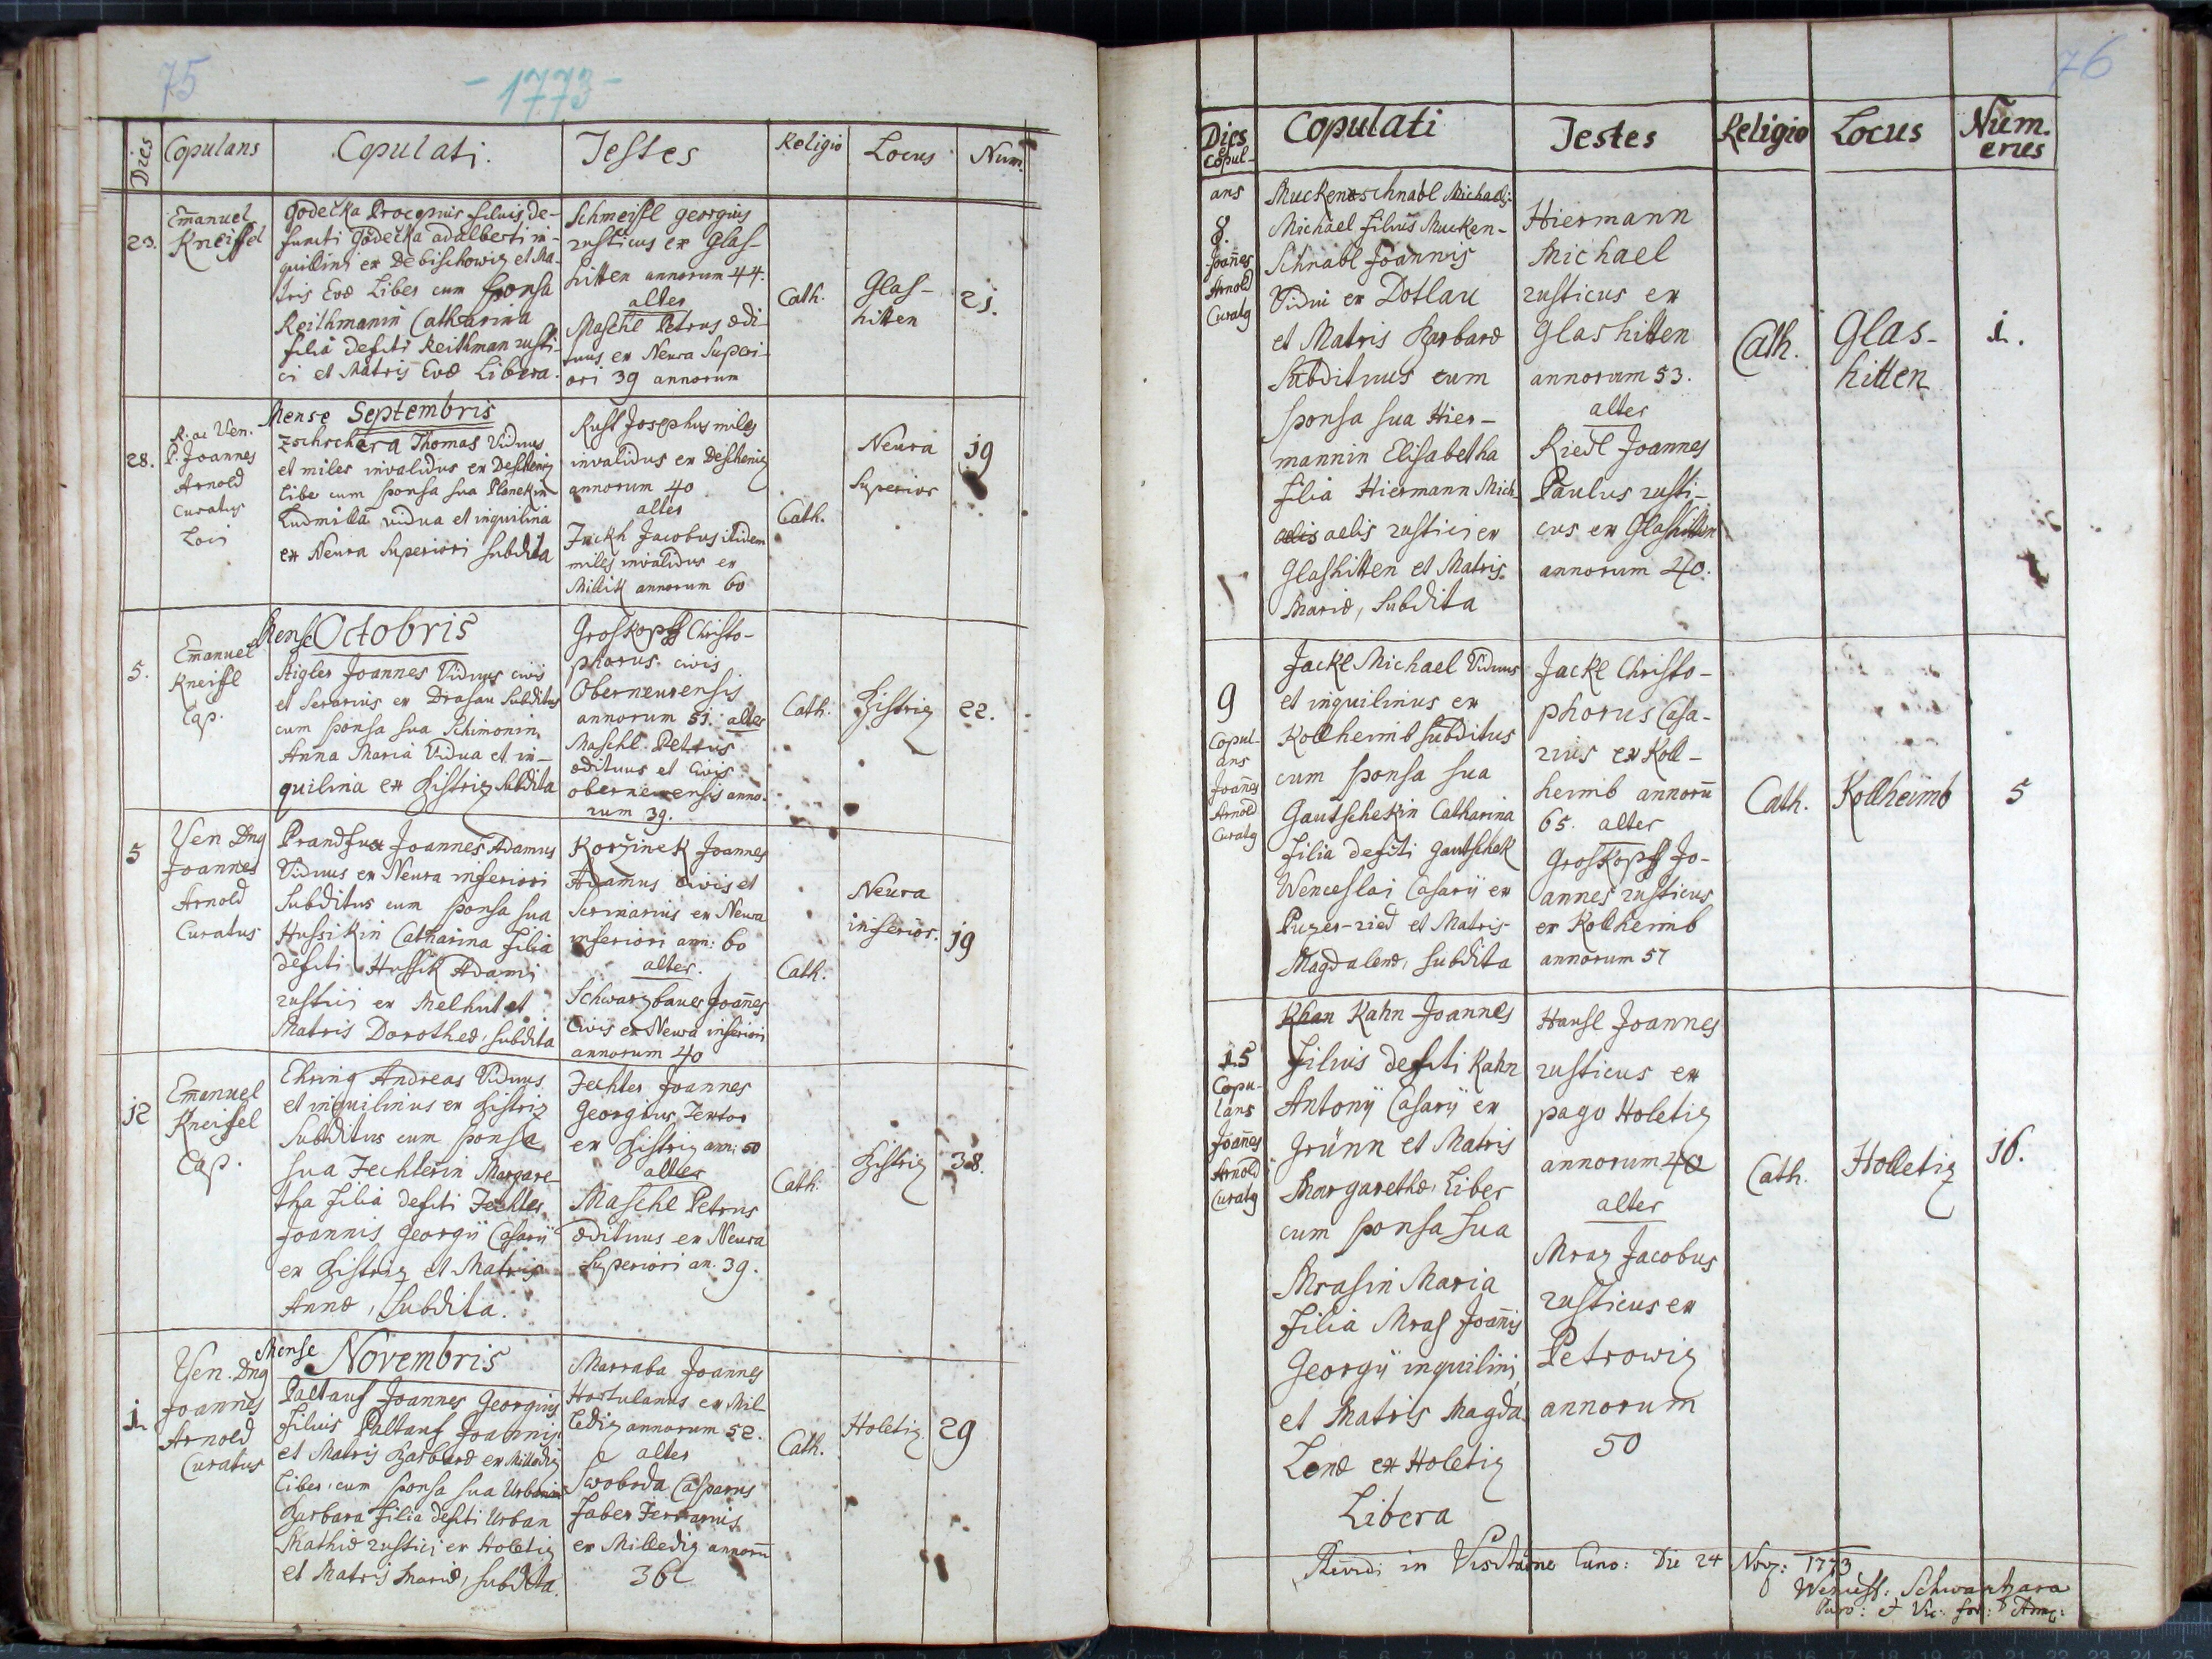 75
- 1773 -
Dies
Copulans
Copulati.
Testes
Religio
Locus
Num.
23.
Emanuel
Kneissel
Godečka Procopius filius de-
functi Godečka adalberti in-
quillini ex Debischowiz et Ma-
tris Evæ Liber cum sponsa
Reithmanin Catharina
filia defcti Reithman rusti-
ci et Matris Evæ Libera.
Schmeissl georgius
rusticus ex Glas-
hitten annorum 44.
alter
Maschl Petrus ædi-
tuus ex Neura Superi-
ori 39 annorum
Cath.
Glas-
hitten
21.
Mense Septembris
28.
R. ac Ven.
P. Joannes
Arnold
Curatus
Loci
Thomas Viduus
et miles invalidus ex Descheniz
Libe cum sponsa sua Planekin
Ludmilla vidua et inquilina
ex Neura Superiori Subdita
Rust Josephus miles
invalidus ex Descheniz
annorum 40
alter
Jackh Jacobus itidem
miles invalidus ex
Millik annorum 60
Cath.
Neura
Superior
19
Mense Octobris
5.
Emanuel
Kneissl
Cap.
Aigler Joannes Viduus civis
et Serarius ex Drosau Subditus
cum sponsa sua Schimonin
Anna Maria Vidua et in-
quilina ex Bistriz Subdita
Groskopff Christo-
phorus civis
Oberneurensis
annorum 51. alter
Maschl Petrus
ædituus et Civis
oberneurensis anno-
rum 39.
Cath.
Bistriz
22.
5
Ven Dng
Joannes
Arnold
Curatus
Joannes Adamus
Viduus ex Neura inferiori
Subditus cum sponsa sua
Hussikin Catharina filia
defcti Hussik Adami
rustici ex Melhut et
Matris Dorotheæ, Subdita
Kořinek Joannes
Adamus Civis et
Scrinarius ex Neura
inferiori ann: 60
alter.
Schwarzbauer Joañes
Civis ex Neura inferiori
annorum 40
Cath.
Neura
inferior.
19
12
Emanuel
Kneissel
Cap.
Ehring Andreas Viduus
et inquilinus ex Bistriz
Subditus cum sponsa
sua Fechterin Margare-
tha filia defcti Fechter
Joannis Georgii Casarii
ex Bistriz et Matris
Annæ, Subdita.
Fechter Joannes
Georgius, Textor
ex Bistriz ann: 50
alter
Maschl Petrus
ædituus ex Neura
Superiori an. 39.
Cath.
Bistriz
38.
Mense Novembris
1.
Ven. Dng
Joannes
Arnold
Curatus
Paltauf Joannes Georgius
filius Paltauf Joannis
et Matris Barbaræ ex Milledig
Liber, cum sponsa sua Urbanin
Barbara filia defcti Urban
Mathiæ rustici ex Holetiz
et Matris Mariæ, Subdita.
Marraba Joannes
Hortulanus ex Mil-
ledig annorum 52.
alter
Swoboda Casparus
Faber Ferrarius
ex Milledig annorū
36
Cath.
Holetiz
29
76
Dies
Copul-
Copulati
Testes
Religio
Locus
Num.
erus
ans
8.
Joañes
Arnold
Curatg
Muckenschnabl Michaelis
Michael filius Mucken-
Schnabl Joannis
Vidui ex Dotlau
et Matris Barbaræ
Subdituus cum
sponsa sua Hier-
mannin Elisabetha
filia Hiermann Mich-
aelis aelis rustici ex
Glashitten et Matris
Mariæ, Subdita
Hiermann
Michael
rusticus ex
Glashitten
annorum 53.
alter
Riedl Joannes
Paulus rusti-
cus ex Glashitten
annorum 40.
Cath.
Glas-
hitten
1.
9
Copul-
ans
Joañes
Arnold
Curatg
Jackl Michael Viduus
et inquilinus ex
Kollheimb Subditus
cum sponsa sua
Gautschekin Catharina
filia defcti Gautschek
Wenceslai Casarii ex
Puzer-ried et Matris
Magdalenæ, Subdita
Jackl Christo-
phorus Casa-
rius ex Koll-
heimb annorū
65. alter
Groskopff Jo-
annes rusticus
ex Kollheimb
annorum 57
Cath.
Kollheimb
5
15
Copu-
lans
Joañes
Arnold
Curatg
Khan Kahn Joannes
filius defcti Kahn
Antony Casarii ex
Grünn et Matris
Margarethæ, Liber
cum sponsa sua
Mrasin Maria
filia Mras Joañis
Georgii inquilini
et Matris Magda-
Lenæ ex Holetiz
Libera
Hansl Joannes
rusticus ex
pago Holetiz
annorum 40
alter
Mraz Jacobus
rusticus ex
Petrowiz
annorum
50
Cath.
Holletiz
16.
Revidi in Visitatione Cano: Die 24 Nov: 1773
Wencesl: Schwanhara